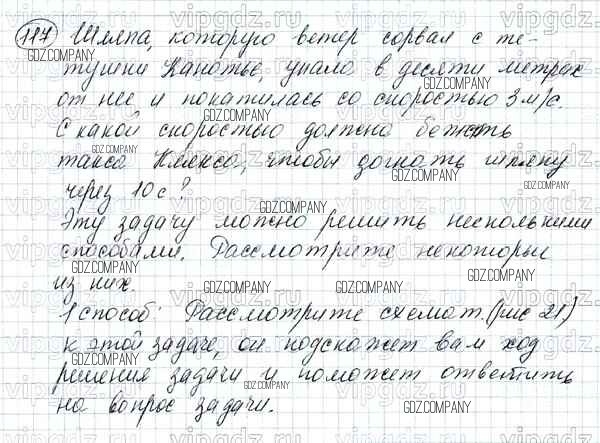 117 Шляпа, которую ветер сорвал с те-
тушки Канотье, упала в десяти метрах
от нее и покатилась со скоростью 3 м/с.
С какой скоростью должна бежать
такса Клякса, чтобы догнать шляпу
через 10 с?
Эту задачу можно решить несколькими
способами. Рассмотрите некоторые
из них.
1 способ: Рассмотрите схемат. (рис 21)
к этой задаче, он подскажет вам ход
решения задачи и поможет ответить
на вопрос задачи.